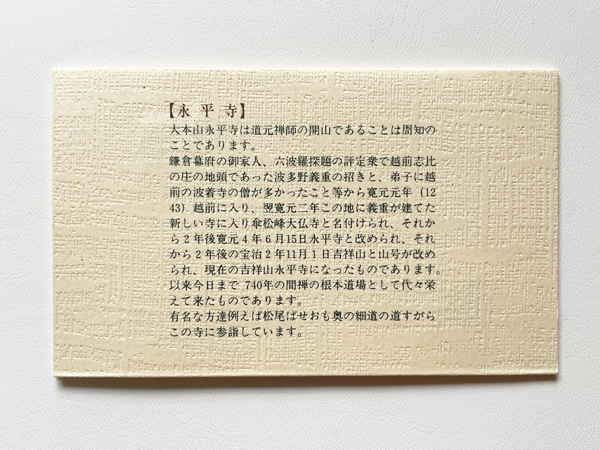 【永平寺】
大本山永平寺は道元禅師の開山であることは周知の
ことであります。
鎌倉幕府の御家人、六波羅探題の評定衆で越前志比
の庄の地頭であった波多野義重の招きと、弟子に越
前の波着寺の僧が多かったこと等から寛元元年(12
43)越前に入り、翌寛元二年この地に義重が建てた
新しい寺に入り傘松峰大仏寺と名付けられ、それか
ら2年後寛元4年6月15日永平寺と改められ、それ
から2年後の宝治2年11月1日吉祥山と山号が改め
られ、現在の吉祥山永平寺になったものであります。
以来今日まで740年の間禅の根本道場として代々栄
えて来たものであります。
有名な方達例えば松尾ばせおも奥の細道の道すがら
この寺に参詣しています。